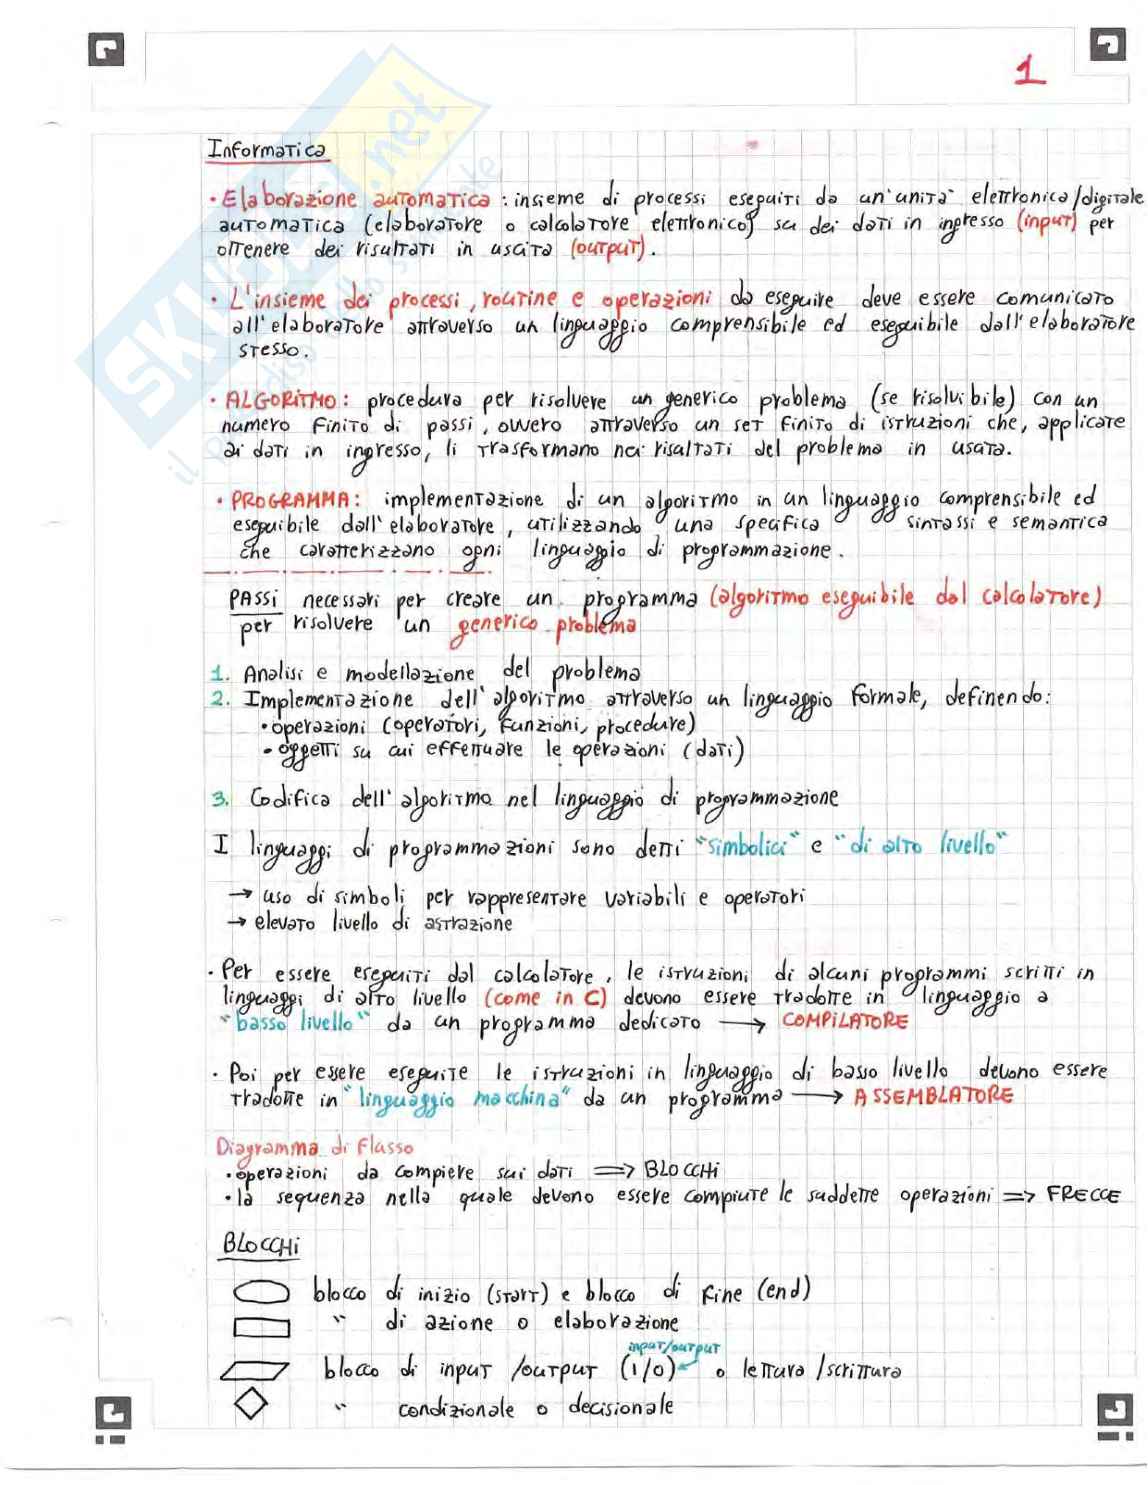 1
Informatica
• Elaborazione automatica : insieme di processi eseguiti da un'unità elettronica/digitale
automatica (elaboratore o calcolatore elettronico) su dei dati in ingresso (input) per
ottenere dei risultati in uscita (output).
• L'insieme dei processi, routine e operazioni da eseguire deve essere comunicato
all'elaboratore attraverso un linguaggio comprensibile ed eseguibile dall'elaboratore
stesso.
• ALGORITMO: procedura per risolvere un generico problema (se risolvibile) con un
numero finito di passi, ovvero attraverso un set finito di istruzioni che, applicate
ai dati in ingresso, li trasformano nei risultati del problema in usata.
• PROGRAMMA: implementazione di un algoritmo in un linguaggio comprensibile ed
eseguibile dall'elaboratore, utilizzando una specifica sintassi e semantica
che caratterizzano ogni linguaggio di programmazione.
PASSI necessari per creare un programma (algoritmo eseguibile dal calcolatore)
per risolvere un generico problema
1. Analisi e modellazione del problema
2. Implementazione dell'algoritmo attraverso un linguaggio formale, definendo:
• operazioni (operatori, funzioni, procedure)
• oggetti su cui effettuare le operazioni (dati)
3. Codifica dell'algoritmo nel linguaggio di programmazione
I linguaggi di programmazioni sono detti "simbolici" e "di alto livello"
→ uso di simboli per rappresentare variabili e operatori
→ elevato livello di astrazione
• Per essere eseguiti dal calcolatore, le istruzioni di alcuni programmi scritti in
linguaggi di alto livello (come in C) devono essere tradotte in linguaggio a
"basso livello" da un programma dedicato → COMPILATORE
• Poi per essere eseguite le istruzioni in linguaggio di basso livello devono essere
tradotte in "linguaggio macchina" da un programma → ASSEMBLATORE
Diagramma di flusso
• operazioni da compiere sui dati => BLOCCHI
• la sequenza nella quale devono essere compiute le suddette operazioni => FRECCE
BLOCCHI
blocco di inizio (start) e blocco di fine (end)
" di azione o elaborazione
input/output
blocco di input /output (i/o) o lettura /scrittura
" condizionale o decisionale
SKUOLA.net